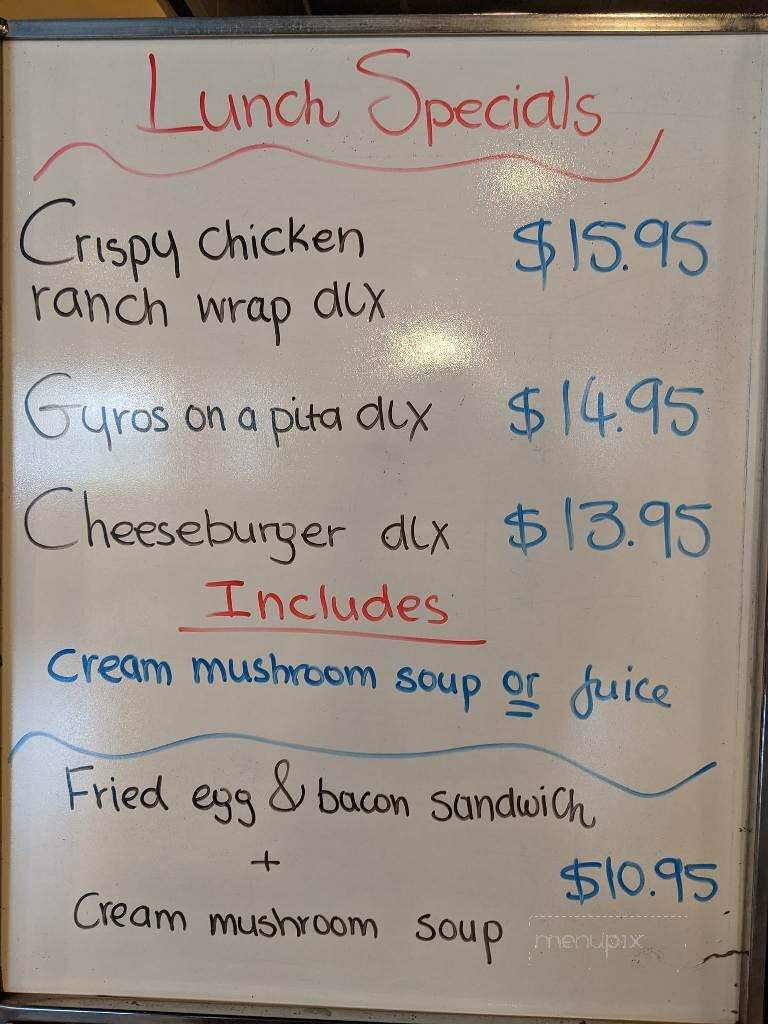 Lunch Specials
Crispy chicken $15.95
ranch wrap dlx
Gyros on a pita dlx $14.95
Cheeseburger dlx $13.95
Includes
Cream mushroom soup or juice
Fried egg & bacon sandwich
+ $10.95
Cream mushroom soup
menupix